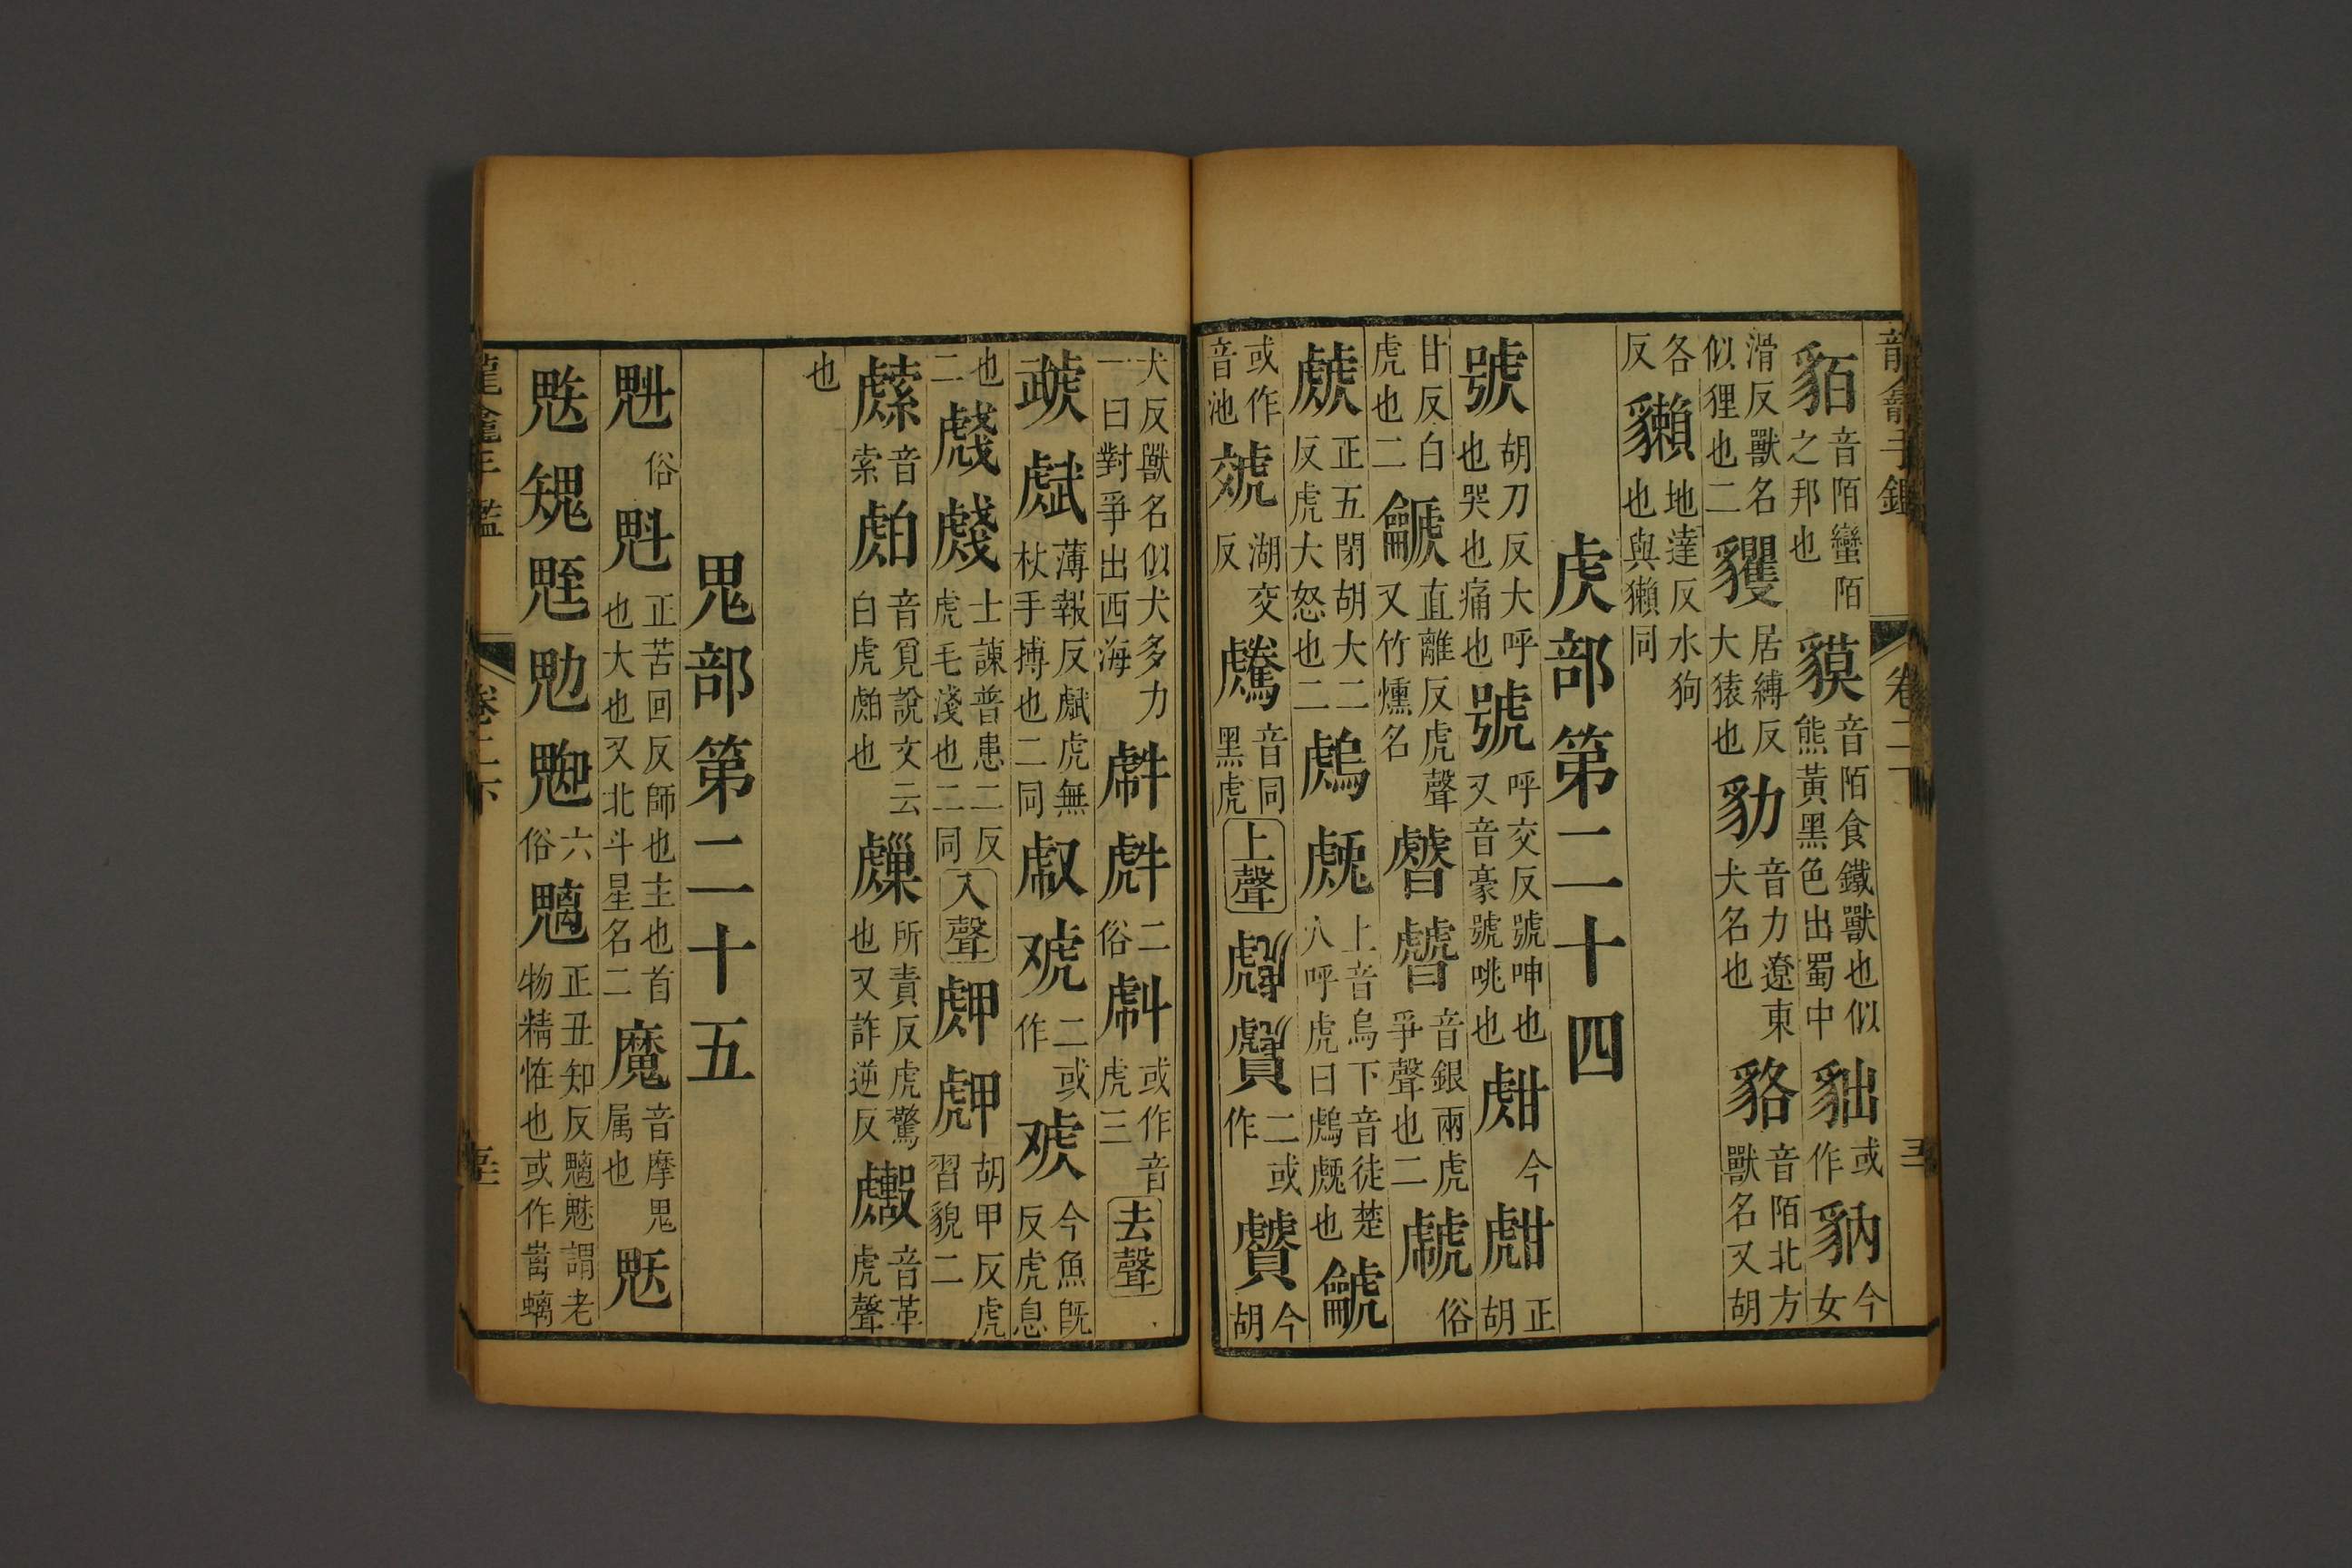 龍龕手鑑 卷二
貊音陌蠻陌之邦也貘音陌食鐵獸也似熊黃黑色出蜀中貀或作豽今女
滑反獸名似狸也二玃居縛反大猿也㔹音力遼東犬名也貉音陌北方獸名又胡
各反獺地達反水狗也與獺同
虎部第二十四
號胡刀反大呼也哭也痛也號呼交反號呻也又音豪號咷也甝今甝正胡
甘反白虎也二䶵直離反虎聲又竹燻名虤音銀兩虎爭聲也二虪俗
正五閑胡大二反虎大怒也二䖚䖘上音烏下音徒楚人呼虎曰䖚䖘也䶵
或作音池虓湖交反騰音同黑虎上聲二或作贙今胡
犬反獸名似犬多力一曰對爭出西海二俗或作音虎三去聲
虣薄報反虣虎無杖手搏也二同二或作今魚旣反虎息
也二虥虥士諫普患二反虎毛淺也二同入聲虎甲胡甲反虎習貌二
音索䖑音覓說文云白虎䖑也所責反虎驚也又詐逆反音革虎聲
也
鬼部第二十五
魁俗魁正苦回反師也主也首也大也又北斗星名二魔音摩鬼属也
六俗魑正丑知反魑魅謂老物精恠也或作螭
龍龕手鑑 卷二下